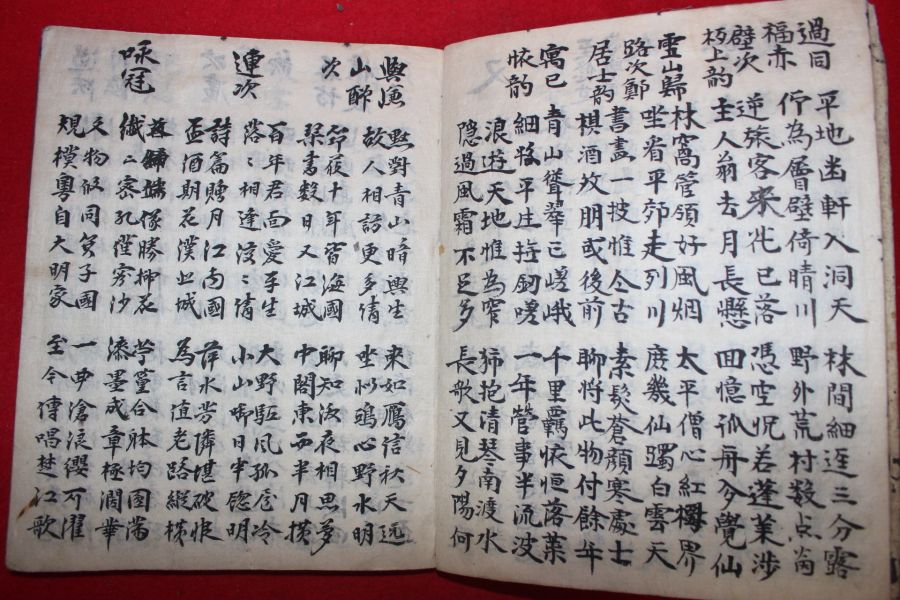 過同
福赤
壁次
板上韵
平地幽軒入洞天 林間細逕三分露
佇為層壁倚晴川 野外荒村数点
逆旅客來花已落 憑空怳若蓬萊涉
主人翁去月長懸 回憶孤舟兮覺仙
雲山歸
路次鄭
居士韵
林窩管領好風烟 太平僧心紅界
坐看平郊走列川 庶幾仙躅白雲天
書畫一披惟今古 素髮蒼顔寒處士
棋酒故朋或後前 聊将此物付餘年
寓巳
韵
青山聳翠已嵯峨 千里覊懷恒落葉
細柳平庄拄釰嗟 一年營事半流波
浪遊天地惟為窄 歸抱清琴南渡水
隐過風霜不足多 長歌又見夕陽何
與漁
山酬
次
默對青山暗興生 來如鴈信秋天远
故人相訪更多情 坐似鴎心野水明
笻屐十年皆海國 聊知夜相思夢
琴書数日又江城 中閣東西半月横
連次
百年君面愛平生 大野駈風孤冷
落〻相逢淡〻情 小山啼日半窓明
詩篇贈月江南國 萍水芳隣堪破恨
盃酒期花漢北城 為言值老路縱横
咏冠
像勝掃花 合躰均團滿
纖〻密孔沙 漆墨成章極潤華
文物似同箕子國 一曲滄浪纓可濯
規模粤自大明家 至今傳唱楚江歌